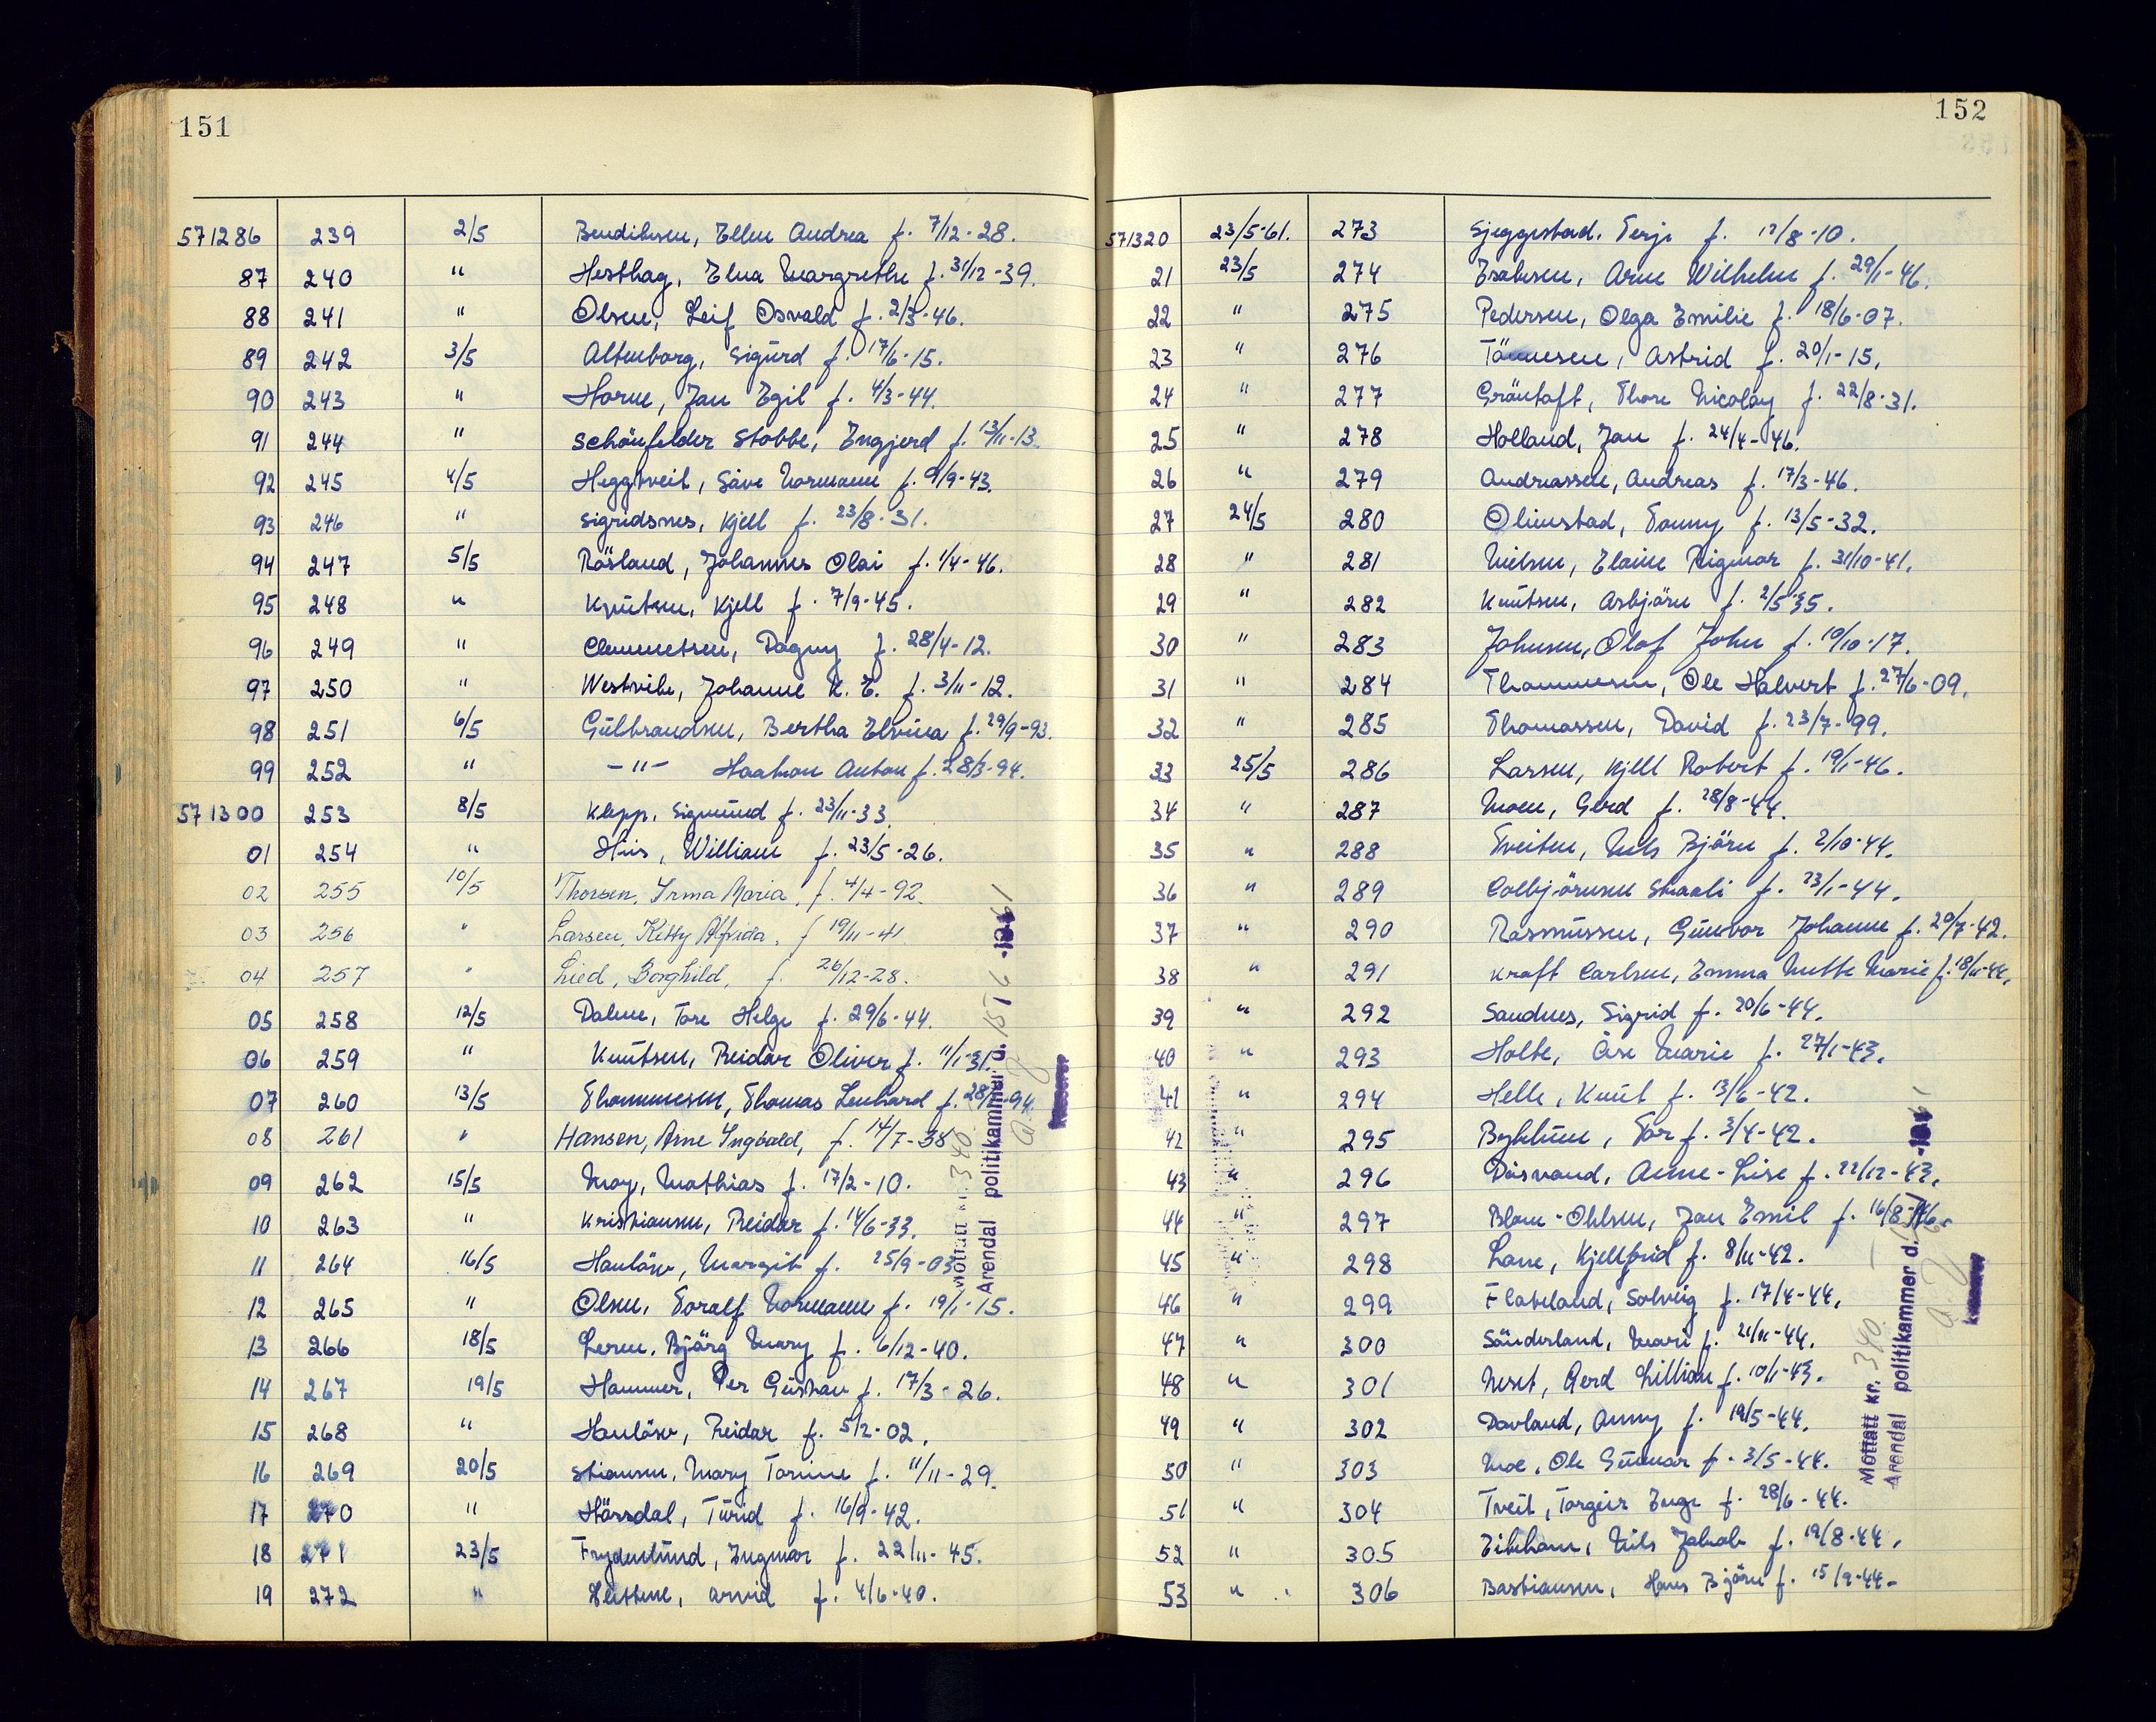 151
571286 239 2/5 Bendiksen, Ellen Andrea f. 7/12-28.
87 240 " Hesthag, Elna Margrethe f. 31/12-39.
88 241 " Olsen, Leif Osvald f. 2/3-46.
89 242 3/5 Altenborg, Sigurd f. 17/6-15.
90 243 " Horne, Jan Egil f. 4/3-44.
91 244 " Schönfelder Stobbe, Ingjerd f. 13/11-13.
92 245 4/5 Heggtveit, Save Normann f. 9/9-43.
93 246 " Sigridsnes, Kjell f. 23/8-31.
94 247 5/5 Røsland, Johannes Olai f. 1/4-46.
95 248 " Knutsen, Kjell f. 7/9-45.
96 249 " Clemmetsen, Dagny f. 28/4-12.
97 250 " Westvik, Johanne K. E. f. 3/11-12.
98 251 6/5 Gulbrandsen, Bertha Elvina f. 29/9-93.
99 252 " -"- Haakon Anton f. 28/3-94.
571300 253 8/5 Klepp, Sigmund f. 23/11-33.
01 254 " Hiis, William f. 23/5-26.
02 255 10/5 Thorsen, Irma Maria, f. 4/4-92.
03 256 " Larsen, Kitty Alfrida, f 19/11-41
04 257 " Lied, Borghild, f. 26/12-28.
05 258 12/5 Dalene, Tore Helge f. 29/6-44.
06 259 " Knutsen, Reidar Oliver f. 11/1-31.
07 260 13/5 Thommesen, Thomas Lenhard f. 28/ -94.
08 261 " Hansen, Arne Ingvald, f. 14/7-38
09 262 15/5 Moy, Mathias f. 17/2-10.
10 263 " Kristiansen, Reidar f. 14/6-33.
11 264 16/5 Hanløkv, Margit f. 25/9-03
12 265 " Olsen, Toralf Normann f. 19/1-15.
13 266 18/5 Lerm, Bjørg Mary f. 6/12-40.
14 267 19/5 Hammer, Per Gustav f. 17/3-26.
15 268 " Hanløkv, Reidar f. 5/2-02.
16 269 20/5 Stiansen, Mary Torine f. 11/11-29.
17 270 " Hørsdal, Turid f. 16/9-42.
18 271 23/5 Frydenlund, Ingmar f. 22/11-45.
19 272 " Hetten, Arvid f. 4/6-40.
Mottatt kr. 340
Arendal politikammer d. 15/6 -1961
Kasserer
152
571320 23/5-61. 273 Sjeggestad, Terje f. 12/8-10.
21 23/5 274 Isaksen, Arne Wilhelm f. 29/1-46.
22 " 275 Pedersen, Olga Emilie f. 18/6-07.
23 " 276 Tønnesen, Astrid f. 20/1-15.
24 " 277 Grøntoft, Thore Nicolay f. 22/8-31.
25 " 278 Holland, Jan f. 24/4-46.
26 " 279 Andreassen, Andreas f. 17/3-46.
27 24/5 280 Olimstad, Tommy f. 13/5-32.
28 " 281 Nielsen, Elaine Rigmor f. 31/10-41.
29 " 282 Knutsen, Asbjørn f. 2/5-35.
30 " 283 Johnsen, Olaf John f. 10/10-17.
31 " 284 Thommesen, Ole Halvert f. 27/6-09.
32 " 285 Thomassen, David f. 23/7-99.
33 25/5 286 Larsen, Kjell Robert f. 19/1-46.
34 " 287 Moen, Gerd f. 28/8-44.
35 " 288 Tveiten, Nils Bjørn f. 2/10-44.
36 " 289 Colbjørnsen Skaali f. 23/1-44.
37 " 290 Rasmussen, Gunvor Johanne f. 20/7-42.
38 " 291 Kraft Carlsen, Emma Mette Marie f. 18/11-44.
39 " 292 Sandnes, Sigrid f. 20/6-44.
40 " 293 Holte, Åse Marie f. 27/1-43.
41 " 294 Helle, Knut f. 13/6-42.
42 " 295 Byklum, Tor f. 3/4-42.
43 " 296 Dåsvand, Anne-Lise f. 22/12-43.
44 " 297 Blom-Ohlsen, Jan Emil f. 16/8-46.
45 " 298 Lane, Kjellfrid f. 8/11-42.
46 " 299 Flateland, Solveig f. 17/4-44.
47 " 300 Sønderland, Mari f. 21/11-44.
48 " 301 Neset, Gerd Lillian f. 10/1-43.
49 " 302 Dovland, Anny f. 19/5-44.
50 " 303 Moe, Ole Gunnar f. 3/5-44.
51 " 304 Tveit, Torgeir Inge f. 28/6-44.
52 " 305 Eikeham, Nils Jakob f. 19/8-44.
53 " 306 Bastiansen, Hans Bjørn f. 15/9-44-
Mottatt kr. 340.-
Arendal politikammer d. -1961
Kasserer